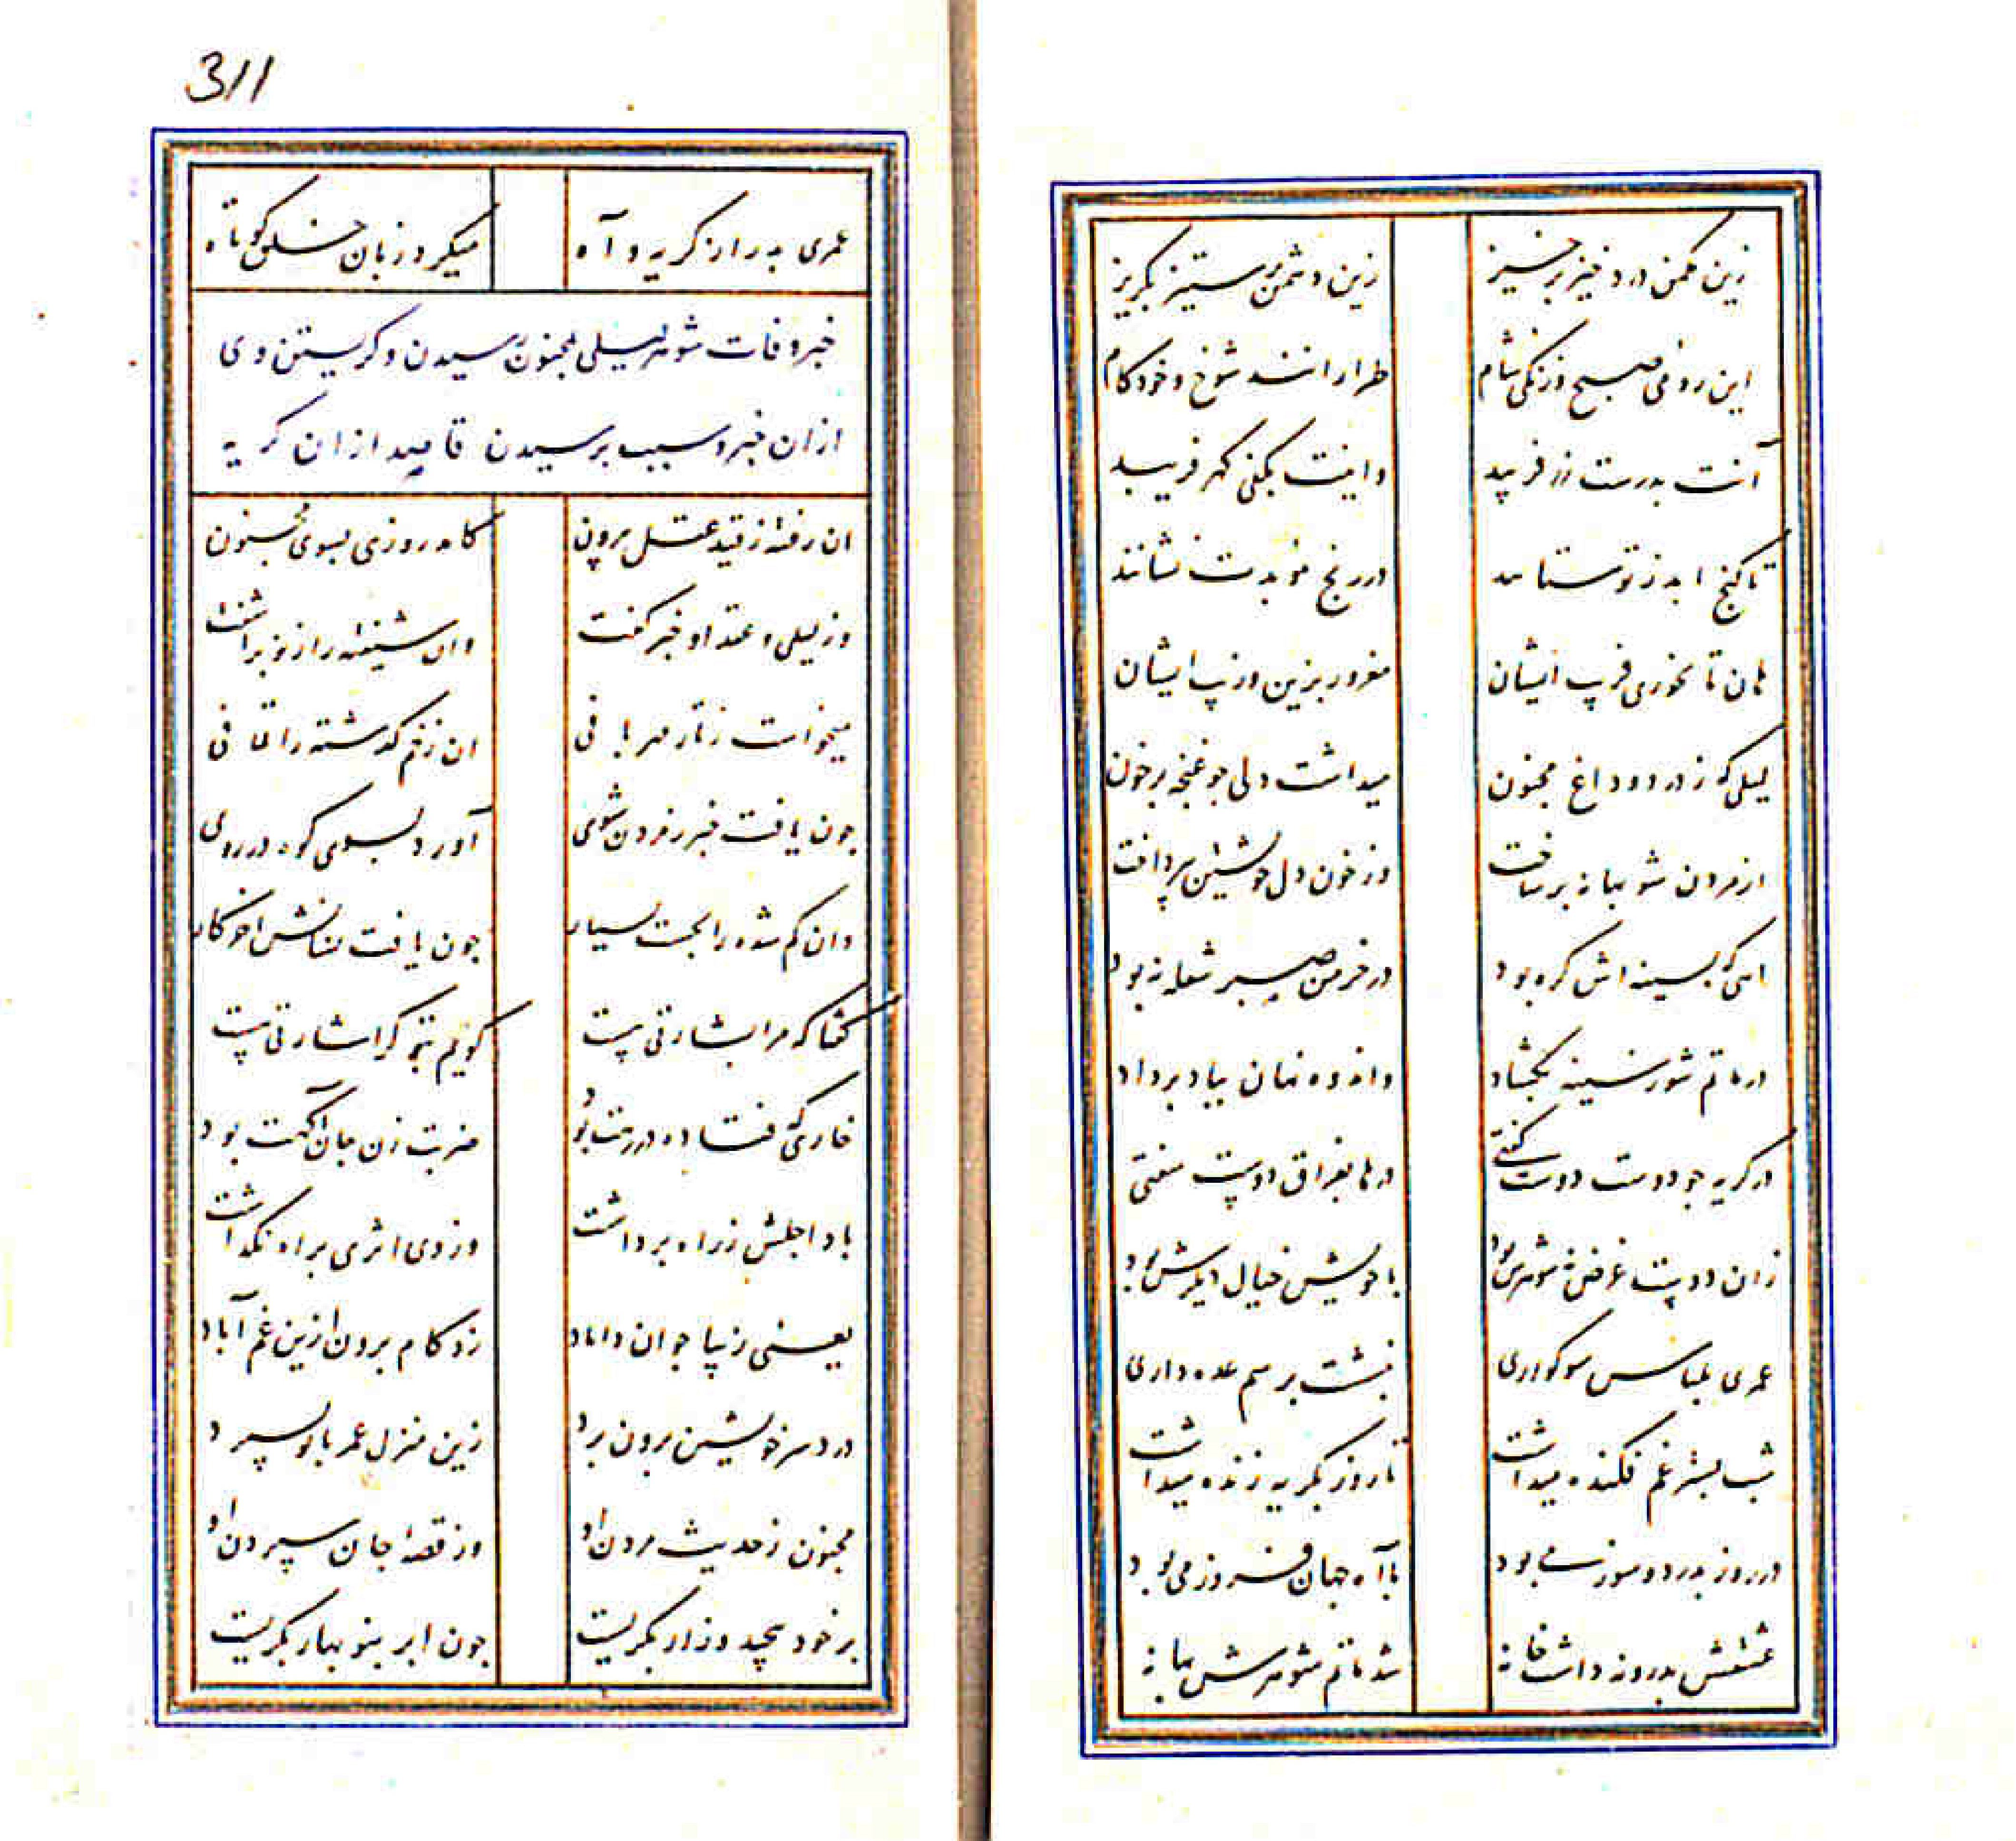 زین مکمن درد خیز برخیز    زین دشمن پر ستیز بگریز
این رومی صبح و زنگی شام    طرارانند شوخ و خودکام
آنت بدرست زر فریبد    وانیت بکنی گهر فریبد
تا گنج ابد ز تو ستانند    در رنج مؤبدت نشانند
هان تا نخوری فریب ایشان    مغرور بزین و زیب ایشان
لیلی که ز درد و داغ مجنون    میداشت دلی چو غنچه پرخون
از مردن شو بهانه برساخت    وز خون دل خویشتن بپرداخت
آهی که بسینه اش گره بود    در خرمن صبر شعله زد بود
در ماتم شوی سینه بگشاد    واندوه نهان بباد برداد
در گریه چو دوست دوست گفتی    درها بفراق دوست سفتی
زان دوست غرض نه شوهرش بود    با خویش خیال دیگرش بود
عمری بلباس سوکواری    بنشست برسم عده داری
شب بستر غم فکنده میداشت    تا روز بگریه زنده میداشت
در روز بدرد و سوز می بود    با آه جهان فروز می بود
عشقش بدرون داشت خانه    شد ماتم شوهرش بهانه
311
عمری بدراز گریه و آه    میکرد زبان خلق کوتاه
خبر وفات شوهر لیلی بمجنون رسیدن و گریستن وی
ازان خبر و سبب پرسیدن قاصد ازان گریه
ان رفته ز قید عقل بیرون    کامد روزی بسوی مجنون
وز لیلی و عقد او خبر گفت    وان شیفته را ازو براشفت
میخواست ز تار مهربافی    ان زخم گذشته را تلافی
چون یافت خبر ز مردن شوی    آورد بسوی کوه در روی
وان گم شده را بجست بسیار    چون یافت نشانش اخر کار
گفتا که مرا بشارتی هست    گویم بتو گر اشارتی هست
خاری که فتاده در رهت بود    ضربت زن جان آگهت بود
باد اجلش ز راه برداشت    وز وی اثری براه نگذاشت
یعنی زیبا جوان داماد    زد گام برون ازین غم آباد
درد سر خویشتن برون برد    زین منزل عمر با تو سپرد
مجنون ز حدیث مردن او    وز قصه جان سپردن او
بر خود پیچید و زار بگریست    چون ابر بنو بهار بگریست